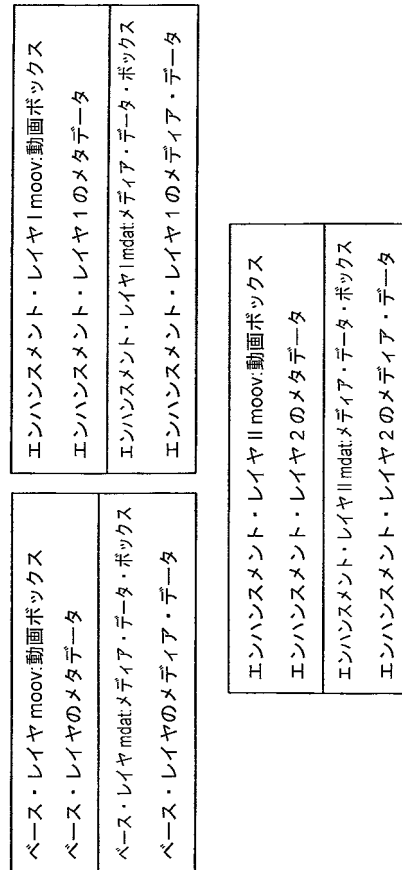 ベース・レイヤ moov:動画ボックス
ベース・レイヤのメタデータ
ベース・レイヤ mdat:メディア・データ・ボックス
ベース・レイヤのメディア・データ
エンハンスメント・レイヤ I moov:動画ボックス
エンハンスメント・レイヤ1のメタデータ
エンハンスメント・レイヤ I mdat:メディア・データ・ボックス
エンハンスメント・レイヤ1のメディア・データ
エンハンスメント・レイヤ II moov:動画ボックス
エンハンスメント・レイヤ2のメタデータ
エンハンスメント・レイヤ II mdat:メディア・データ・ボックス
エンハンスメント・レイヤ2のメディア・データ